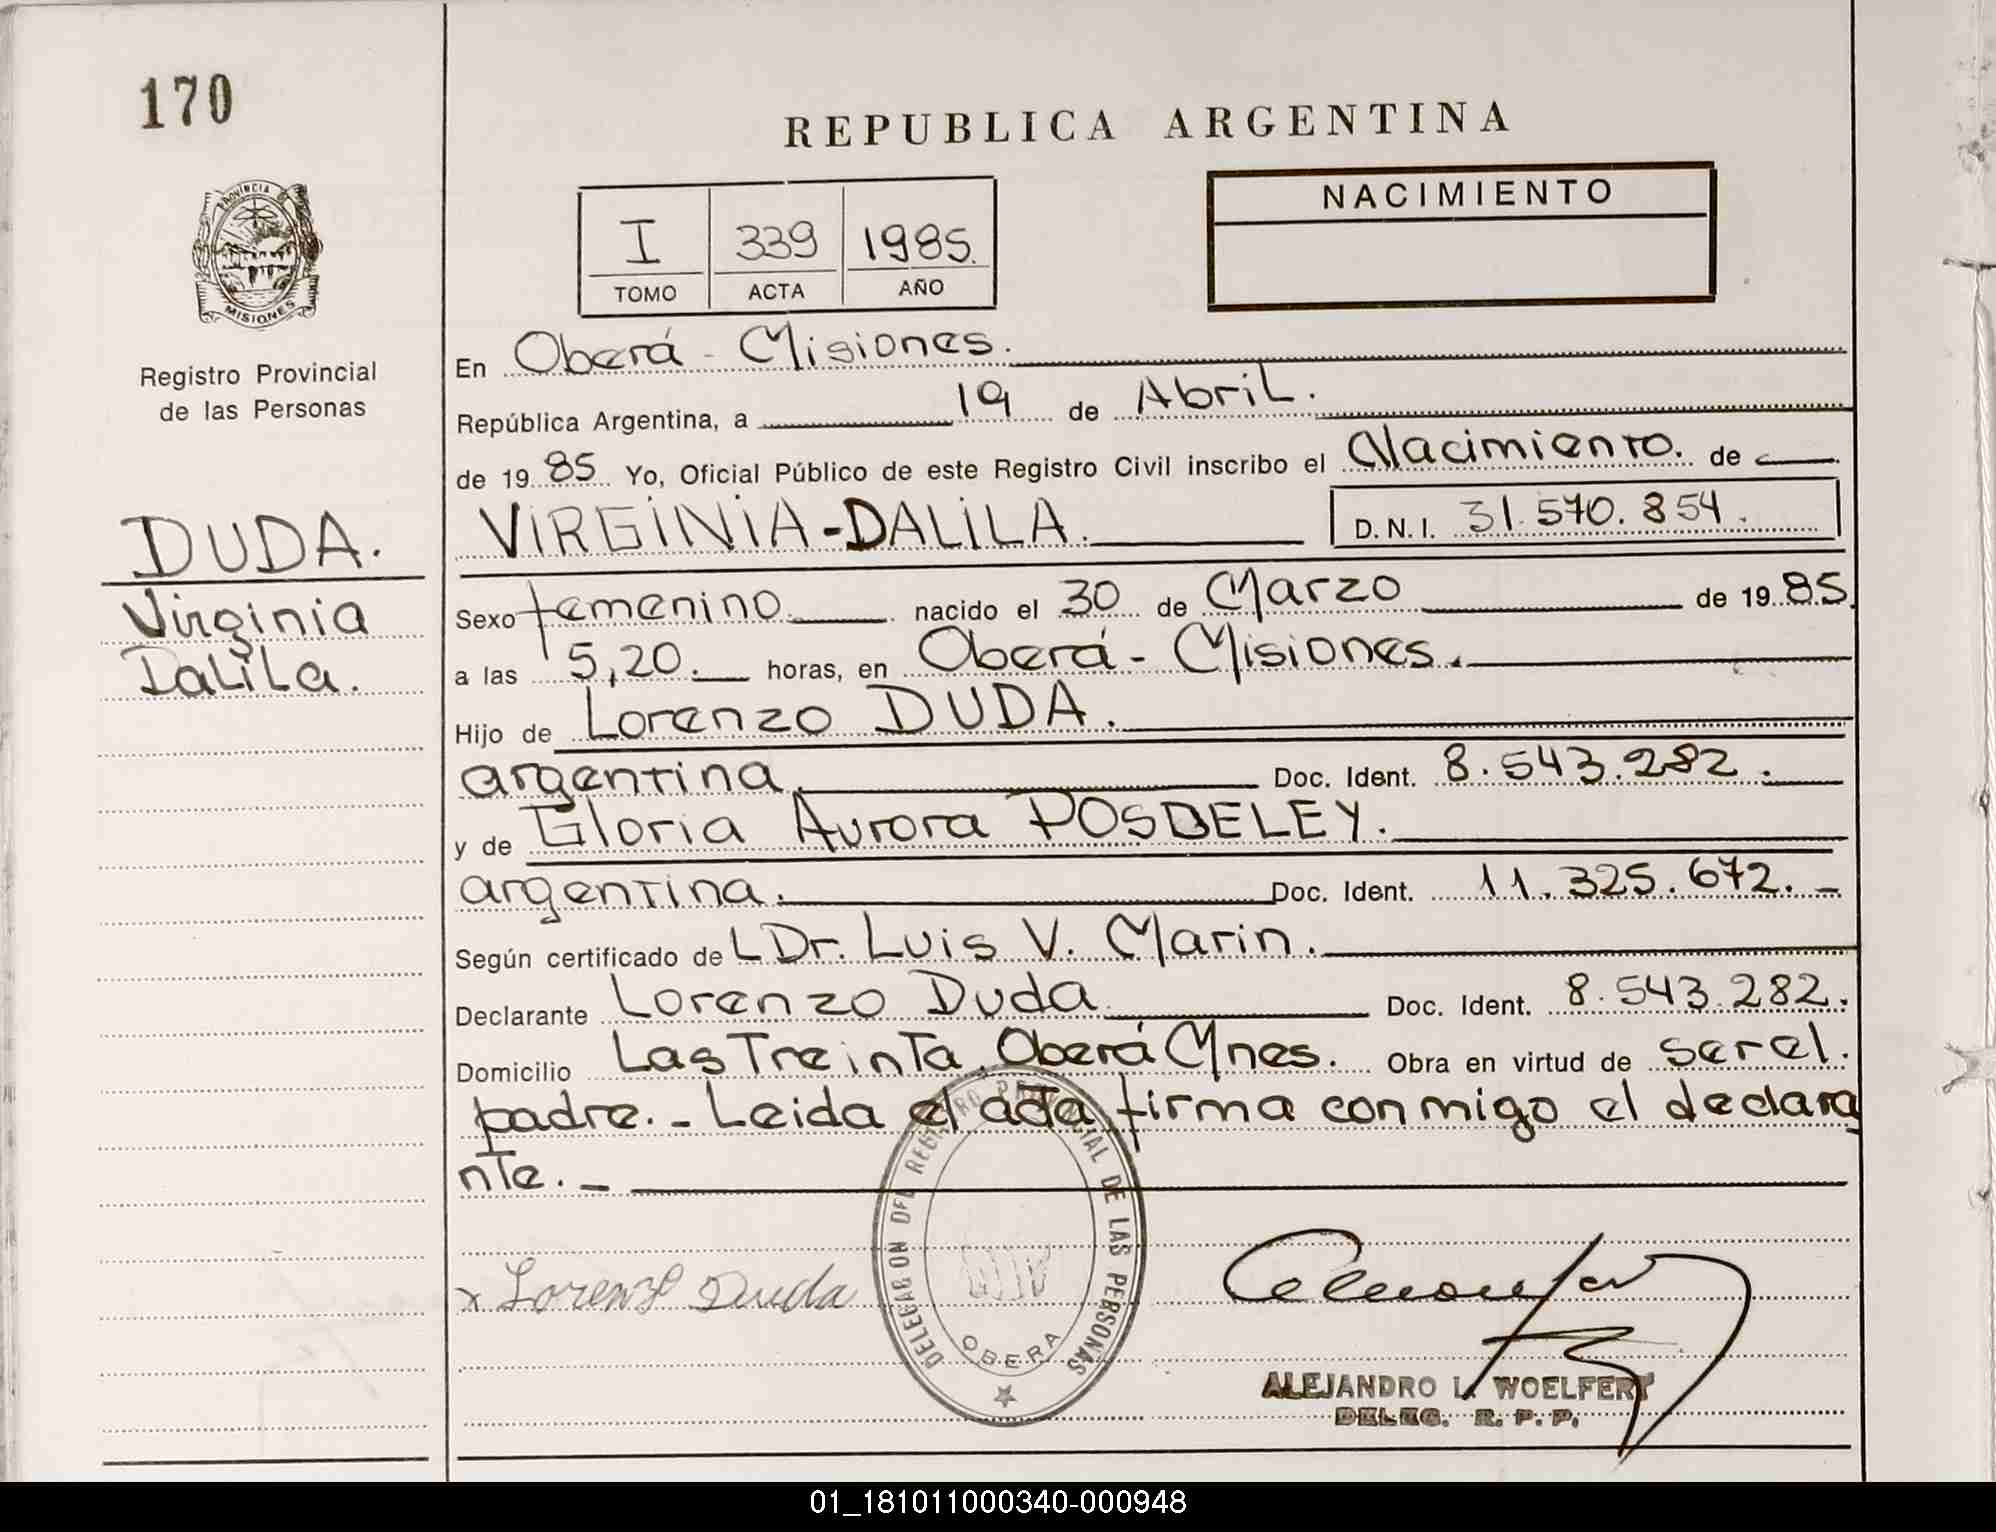 170
REPUBLICA ARGENTINA
PROVINCIA
MISIONES
Registro Provincial
de las Personas
I 339 1985.
TOMO ACTA AÑO
NACIMIENTO
DUDA.
Virginia
Dalila.
En Oberá - Misiones.
República Argentina, a 19 de Abril.
de 19 85 Yo, Oficial Público de este Registro Civil inscribo el Nacimiento. de
VIRGINIA-DALILA. D. N. I. 31.570.854.
Sexo femenino. nacido el 30 de Marzo de 19 85
a las 5,20. horas, en Oberá - Misiones.
Hijo de Lorenzo DUDA.
argentina. Doc. Ident. 8.543.282.
y de Gloria Aurora POSDELEY.
argentina. Doc. Ident. 11.325.672. -
Según certificado de L Dr. Luis V. Marin.
Declarante Lorenzo Duda. Doc. Ident. 8.543.282.
Domicilio Las Treinta, Oberá Mnes. Obra en virtud de ser el.
padre. - Leida el acta firma conmigo el declara
nte. -
DELEGACION DEL REGISTRO PROVINCIAL DE LAS PERSONAS
OBERA
x Lorenzo Duda
ALEJANDRO L. WOELFERT
DELEG. R. P. P.
01_181011000340-000948